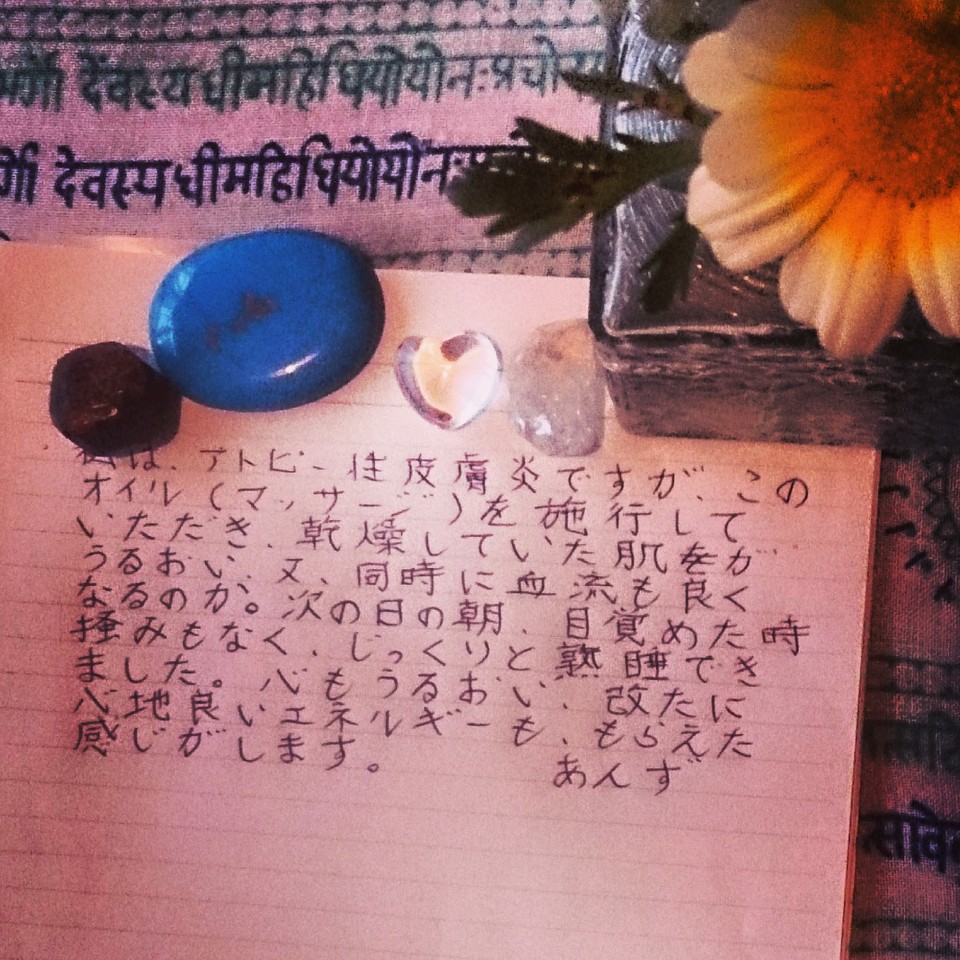 र्गो देवस्य धीमहि धियो योनः प्रचो
र्गो देवस्य धीमहि धियो योनः
私は、アトピー性皮膚炎ですが、この
オイル(マッサージ)を施行して
いただき、乾燥していた肌をが
うるおい、又、同時に血流も良く
なるのか。次の日の朝、目覚めた時
掻みもなく、じっくりと熟睡でき
ました。心もうるおい、改たに
心地良いエネルギーも、もらえた
感じがします。
あんず